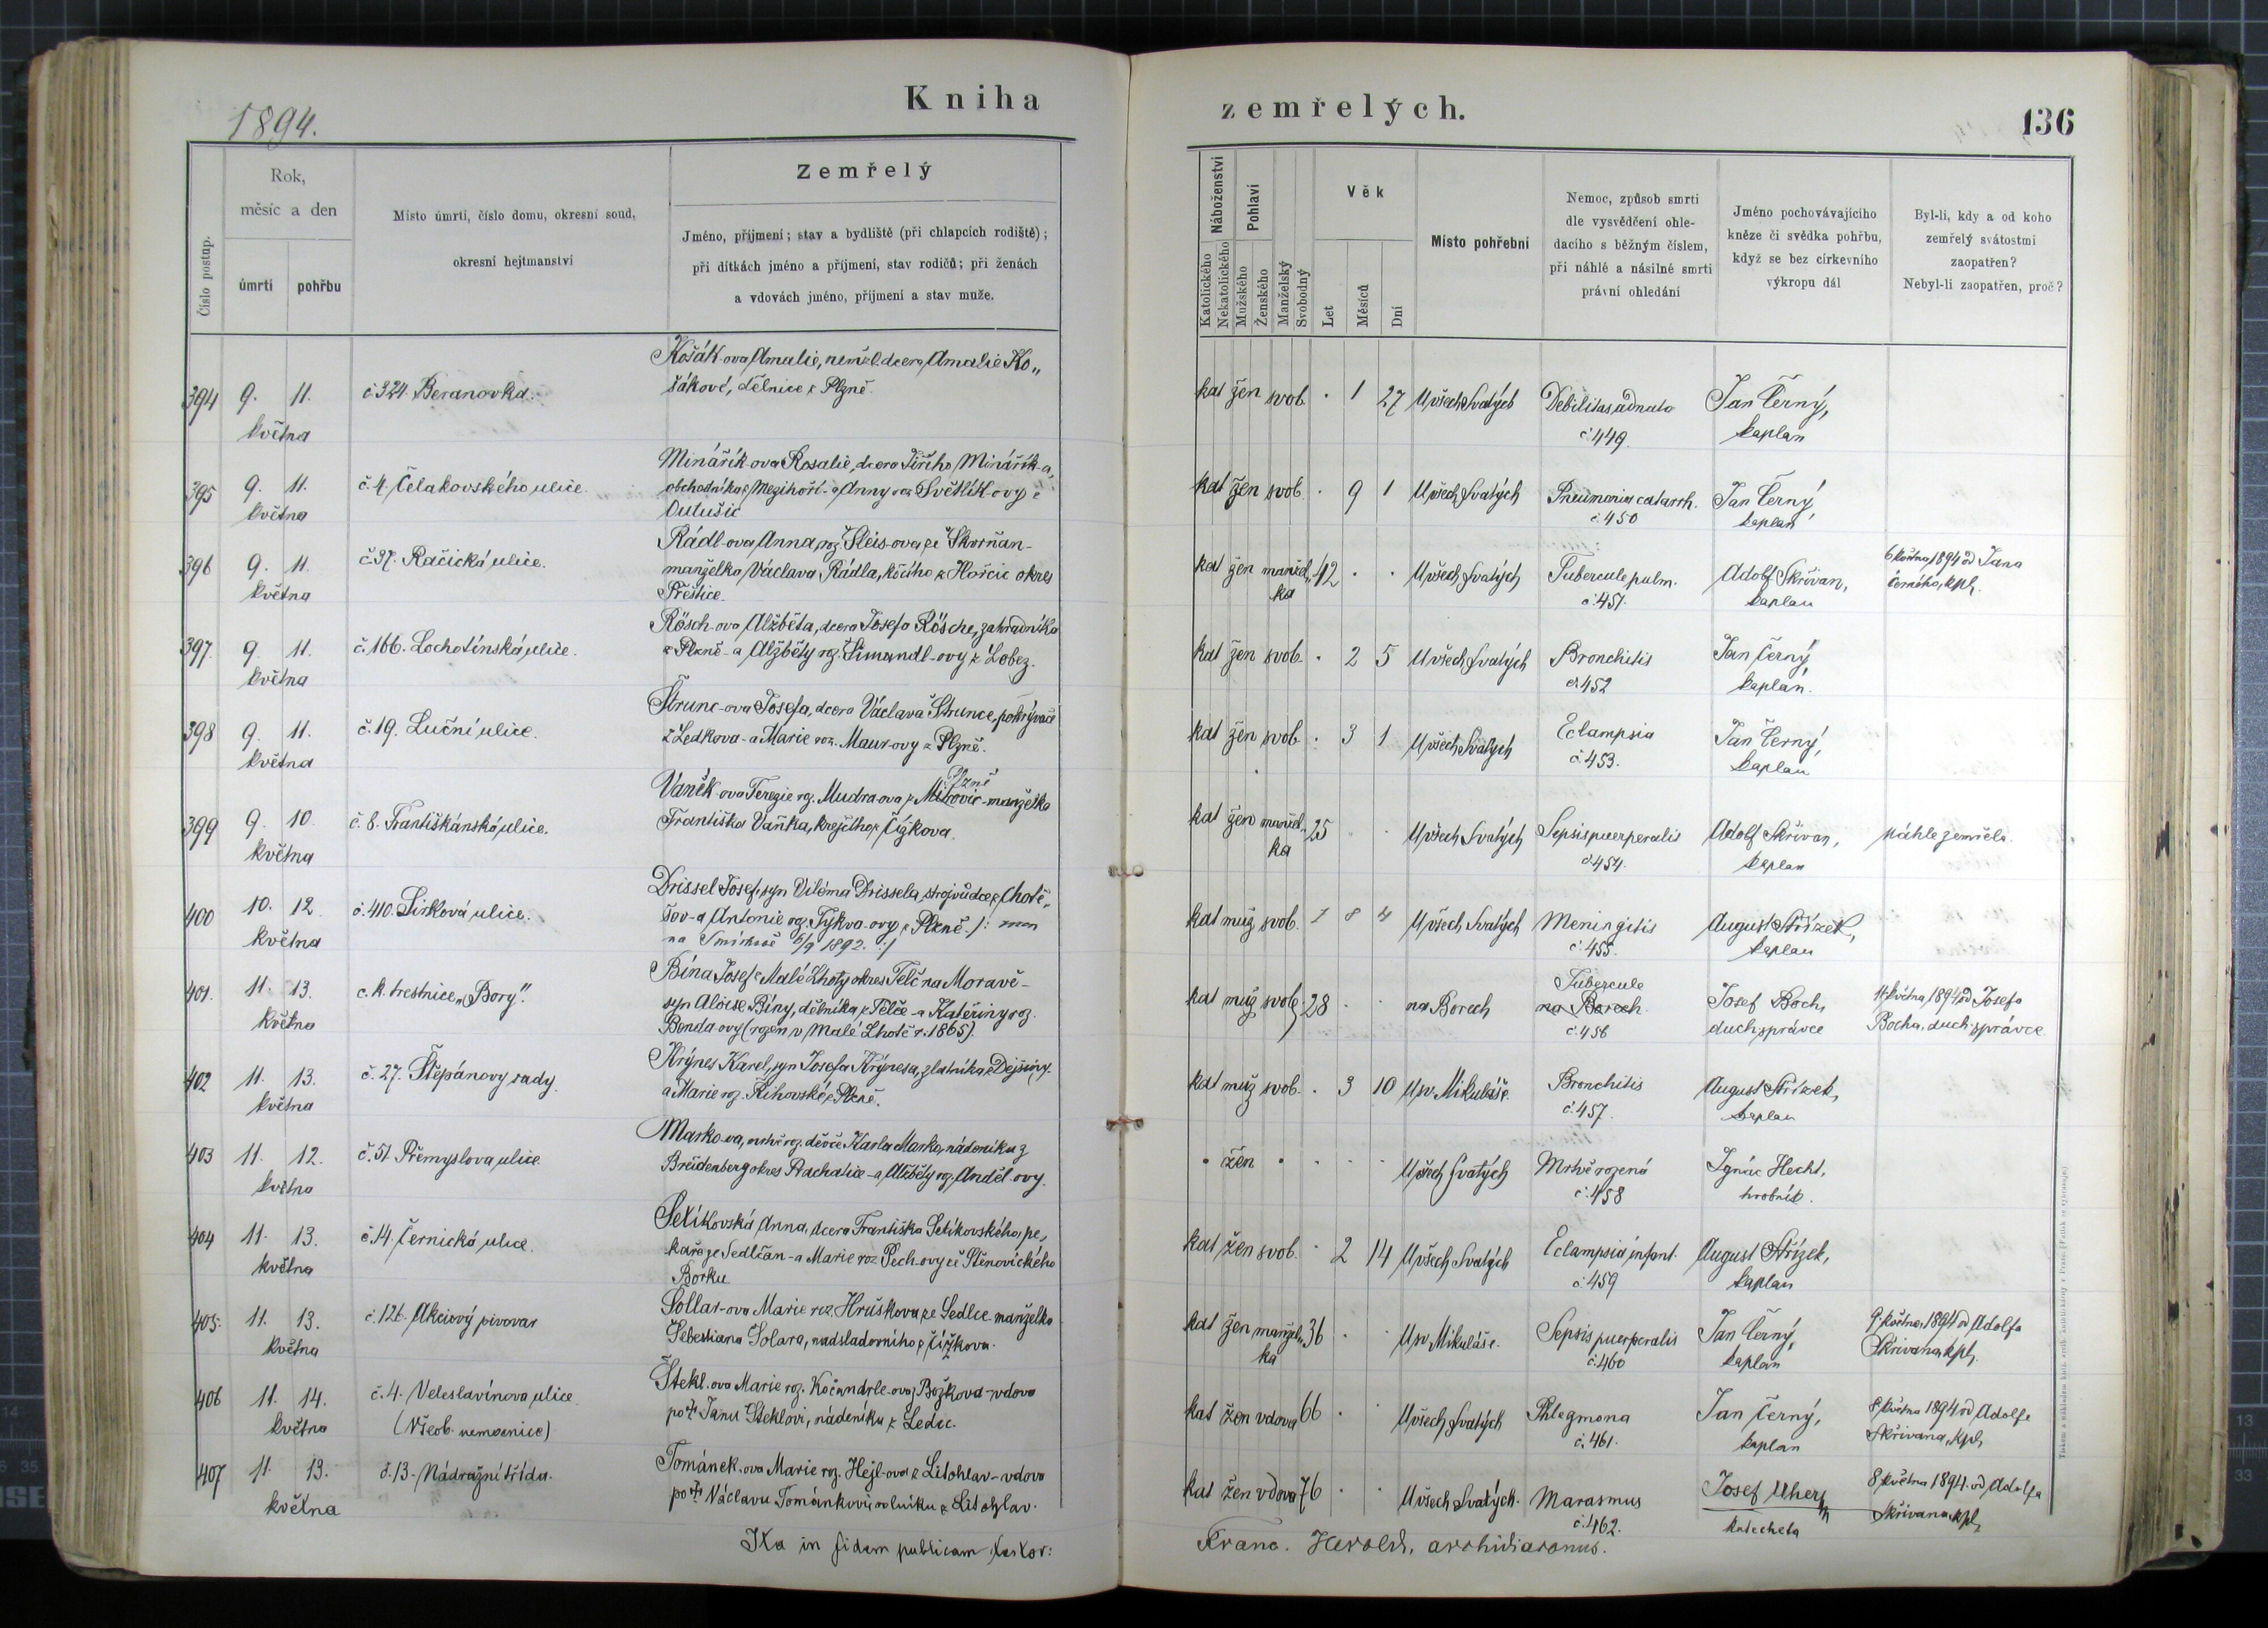 Kniha
zemřelých.
136
1894.
Číslo postup.
Rok,
měsíc a den
úmrtí
pohřbu
Místo úmrtí, číslo domu, okresní soud,
okresní hejtmanství
Zemřelý
Jméno, příjmení; stav a bydliště (při chlapcích rodiště);
při dítkách jméno a příjmení, stav rodičů; při ženách
a vdovách jméno, příjmení a stav muže.
Náboženství
Katolického
Nekatolického
Pohlaví
Mužského
Ženského
Manželský
Svobodný
Věk
Let
Měsíců
Dní
Místo pohřební
Nemoc, způsob smrti
dle vysvědčení ohle-
dacího s běžným číslem,
při náhlé a násilné smrti
právní ohledání
Jméno pochovávajícího
kněze či svědka pohřbu,
když se bez církevního
výkropu dál
Byl-li, kdy a od koho
zemřelý svátostmi
zaopatřen?
Nebyl-li zaopatřen, proč?
394 9. 11. května
č. 324. Beranovka.
Košák-ova Amalie, nemž. dcera Amalie Ko„
šákové, dělnice z Plzně.
kat žen svob. . 1 27 U všech Svatých
Debilitas adnata
č. 449.
Jan Černý,
kaplan
395 9. 11. května
č. 4 Čelakovského ulice.
Minářík-ova Rosalie, dcera Jiřího Minářík-a,
obchodníka z Mezihoří-a Anny roz. Světlík-ovy z
Outušic
kat žen svob. . 9 1 U všech Svatých
Pneumonia catarrh.
č. 450
Jan Černý,
kaplan
396 9. 11. května
č. 37. Račická ulice.
Rádl-ova Anna, roz. Šleis-ova ze Skvrňan-
manželka Václava Rádla, kočího z Horčic okres
Přeštice.
kat žen manžel„ka 42 . . U všech Svatých
Tubercule pulm.
č. 451.
Adolf Skřivan,
kaplan
6 května 1894 od Jana
Černého, kpl.
397. 9. 11. května
č. 166. Lochotínská ulice.
Rösch-ova Alžběta, dcera Josefa Rösche, zahradníka
z Plzně-a Alžběty roz. Šimandl-ovy z Lobez.
kat žen svob. . 2 5 U všech Svatých
Bronchitis
č. 452
Jan Černý,
kaplan.
398 9. 11. května
č. 19. Luční ulice.
Štrunc-ova Josefa, dcera Václava Štrunce, pokrývače
z Ledkova-a Marie roz. Maur-ovy z Plzně.
kat žen svob. . 3 1 U všech Svatých
Eclampsia
č. 453.
Jan Černý,
kaplan
399 9. 10. května
č. 8. Františkánská ulice.
Plzně
Vaněk-ova Terezie roz. Mudra-ova z Mitrovic-manželka
Františka Vaňka, krejčího z Čížkova.
kat žen manžel„ka 25 . . U všech Svatých
Sepsis puerperalis
č. 454.
Adolf Skřivan,
kaplan
náhle zemřela.
400 10. 12. května
č. 410. Sirková ulice.
Drissel Josef, syn Viléma Drissela, strojvůdce z Chotě„
šov-a Antonie roz. Tykva-ovy z Plzně. /: nar.
na Smíchově 6/9 1892. :/
kat muž svob. 1 8 4 U všech Svatých
Meningitis
č. 455.
August Střízek,
kaplan
401. 11. 13. května
c. k. trestnice „Bory“.
Bína Josef z Malé Lhoty okres Telč na Moravě-
syn Aloise Bíny, dělníka z Telče-a Kateřiny roz.
Benda-ovy (rozen v Malé Lhotě r. 1865).
kat muž svob. 28 . . na Borech
Tubercule
na Borech
č. 456
Josef Boch,
duch. správce
11. května 1894 od Josefa
Bocha, duch. správce.
402 11. 13. května
č. 27. Štěpánovy sady.
Krýnes Karel, syn Josefa Krýnesa, zlatníka z Dejšiny.
a Marie roz. Říhovské z Plzně.
kat muž svob. . 3 10 U sv. Mikuláše.
Bronchitis
č. 457.
August Střízek,
kaplan
403 11. 12. května
č. 51. Přemyslova ulice.
Marko-va, mrtvě roz. děvče Karla Marko, nádeníka z
Breidenberg okres Prachatice-a Alžběty roz. Anděl-ovy.
. žen . . . . U všech Svatých
Mrtvě rozená
č. 458
Ignác Hecht,
hrobník.
404 11. 13. května
č. 14. Černická ulice.
Setikovská Anna, dcera Františka Setikovského, pe„
kaře ze Sedlčan-a Marie roz. Pech-ovy ze Štěnovického
Borku.
kat žen svob. . 2 14 U všech Svatých
Eclampsia infant.
č. 459
August Střízek,
kaplan
405. 11. 13. května
č. 126. Akciový pivovar
Sollar-ova Marie roz. Hruškova ze Sedlce manželka
Šebestiana Solara, nadsladovního z Čížkova.
kat žen manžel„ka 36 . . U sv. Mikuláše.
Sepsis puerperalis
č. 460
Jan Černý,
kaplan
9. května 1894 od Adolfa
Skřivana, kpl.
406 11. 14. května
č. 4. Veleslavínova ulice.
(Všeob. nemocnice)
Štekl-ova Marie roz. Kočandrle-ova z Božkova-vdova
po † Janu Šteklovi, nádeníku z Ledec.
kat žen vdova 66 . . U všech Svatých
Phlegmona
č. 461.
Jan Černý,
kaplan
8 května 1894 od Adolfa
Skřivana, kpl.
407 11. 13. května
č. 13. Nádražní třída.
Tománek-ova Marie roz. Hejl-ova z Litohlav-vdova
po † Václavu Tománkovi, rolníku z Litohlav.
kat žen vdova 76 . . U všech Svatých.
Marasmus
č. 462.
Josef Uher,
katecheta
8 května 1894. od Adolfa
Skřivana, kpl.
Ita in fidem publicam testor:
Franc. Herold, archidiaconus.